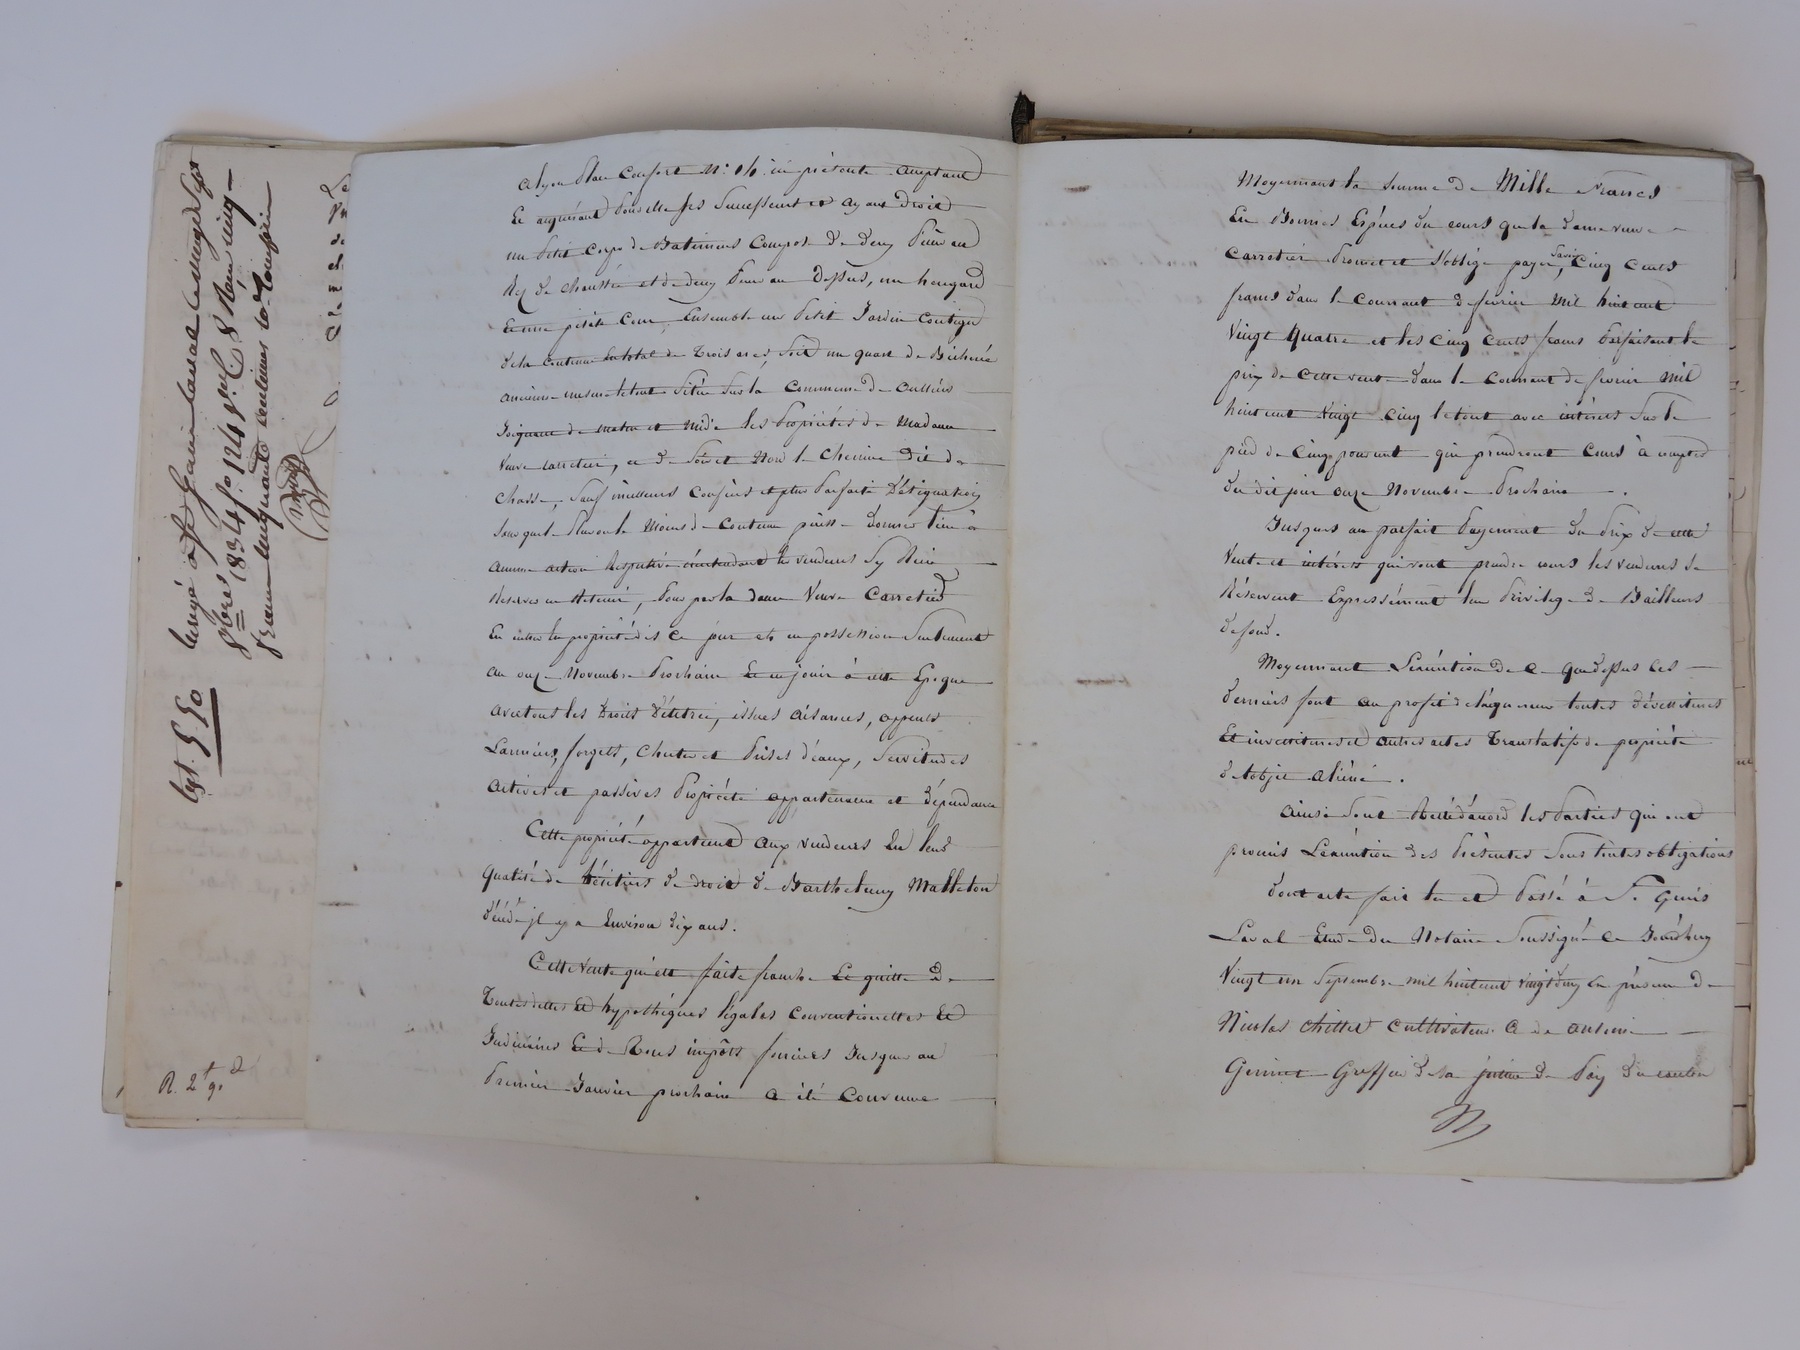 a lyon Place Confort N.° 16. ici présente acceptant
Et acquérant Pour elle ses Successeurs et ayant droit
un Petit Corps de Batiments Composé de deux Pièces au
Rez de chaussée et de deux Pièces au Dessus, un hangard
Et une petite Cour, Ensemble un Petit Jardin Contigu
de la Contenue totale de Trois ares, Soit un quart de Bicherée
ancienne mesure le tout Situé Sur la Commune de Oullins
Joignant de matin et Midi les Propriétés de Madame
Veuve Carretier, et de Soir et Nord le Chemin dit de
Chasse, Sauf meilleurs Confins et plus Parfaite Désignation
Sans que le Plus ou le Moins de Contenue puisse donner lieu à
aucune action Respective entendant les vendeurs Sy Rien
Réserver ni Retenir, Pour par la dame Veuve Carretier
En entrer en propriété dès ce jour et en possession Seulement
au onze Novembre Prochain Et en jouir à cette Epoque
avec tous les Droits d'entrée, issues aisances, appents
Larmiers, forgets, Chutes et Prises d'eaux, Servitudes
actives et passives Propriété appartenance et dépendance
Cette propriété appartient aux vendeurs En leur
qualité de héritiers de droit de Barthelemy Malleton
décédé il y a Environ dix ans.
Cette Vente qui est faite franche Et quitte de
Toutes dettes Et hypothèques légales Conventionelles Et
Judiciaires Et de Tous impôts fonciers Jusques au
Premier Janvier prochain a été Convenue
Moyennant la Somme de Mille Francs
En Bonnes Espèces du cours que la dame veuve
Carretier Promet et S'oblige payer, Savoir Cinq Cents
francs dans le Courant de février Mil huit cent
Vingt Quatre et les Cinq Cents francs Parfaisant le
prix de Cette vente dans le Courant de février Mil
huit cent Vingt Cinq le tout avec intérêts Sur le
pied de Cinq pour cent qui prendront Cours à compter
du dit jour onze Novembre Prochain.
Jusques au parfait Payement du Prix de cette
Vente et intérêts qui vont prendre cours les vendeurs Se
Réservent Expressément leur Privilege de Bailleurs
de fond.
Moyennant L'exécution de ce que dessus les
derniers font au profit de l'acquéreur toutes dévestitures
Et investitures et autres actes Translatifs de propriété
de l'objet aliéné.
ainsi Sont Restés d'accord les Parties qui ont
promis L'exécution des Présentes Sous leurs obligations
dont acte fait lu et Passé à St. Genis
Laval Etude du Notaire Soussigné Ce Jourd'huy
Vingt un Septembre mil huit cent vingt deux En présence de
Nicolas Chillet Cultivateur et de antoine
Greffier de la justice de Paix du canton
1834 f.° 124
Cgt. 5.50
R. 2f 90